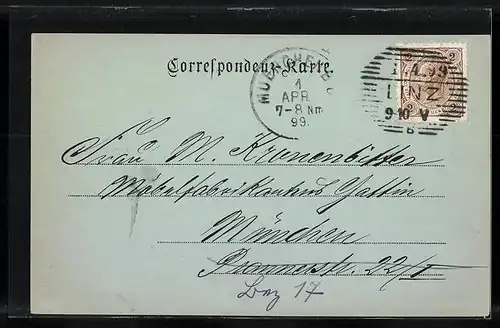 Correspondenz-Karte.
MUENCHEN B.
1
APR.
7-8 Nm
99.
1.4.99
LINZ
9-10 V
B
2 2
Frau M. Kronenbitter
Möbelfabrikantens Gattin
München
Prannerstr. 22/I
Bez 17